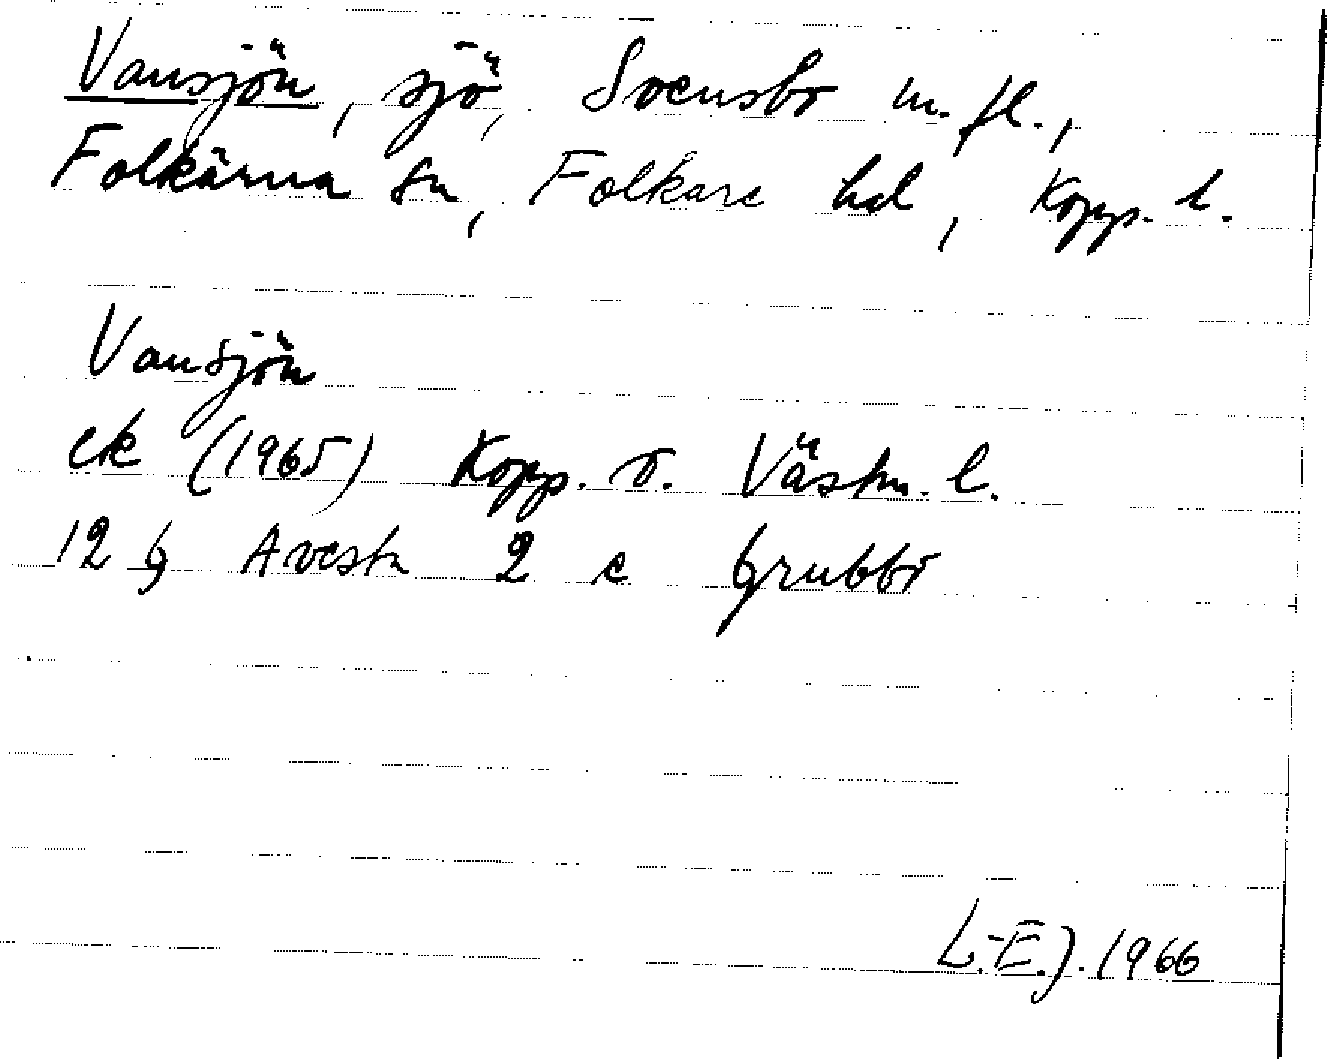 Vansjön, sjö, Svensbo m. fl.,
Folkärna sn, Folkare hd, Kopp. l.
Vansjön
ek (1965) Kopp. o. Västm. l.
12 G Avesta 2 c Grubbo
L.-E. J. 1966